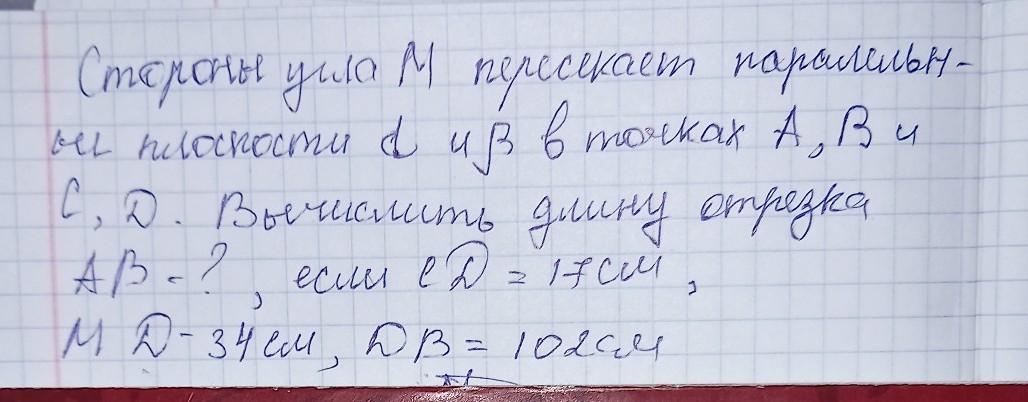 Стороны угла М пересекает паралельн-
ые плоскости α и β в точках А, В и
С, D. Вычислить длину отрезка
АВ - ?, если СD = 17 см,
М D - 34 см, DВ = 102 см